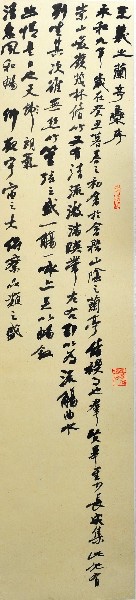 王羲之蘭亭序
永和九年歲在癸丑暮春之初會於會稽山陰之蘭亭修禊事也群賢畢至少長咸集此地有
崇山峻嶺茂林修竹又有清流激湍映帶左右引以為流觴曲水
列坐其次雖無絲竹管弦之盛一觴一詠亦足以暢敘
幽情是日也天朗氣
清惠風和暢仰觀宇宙之大俯察品類之盛